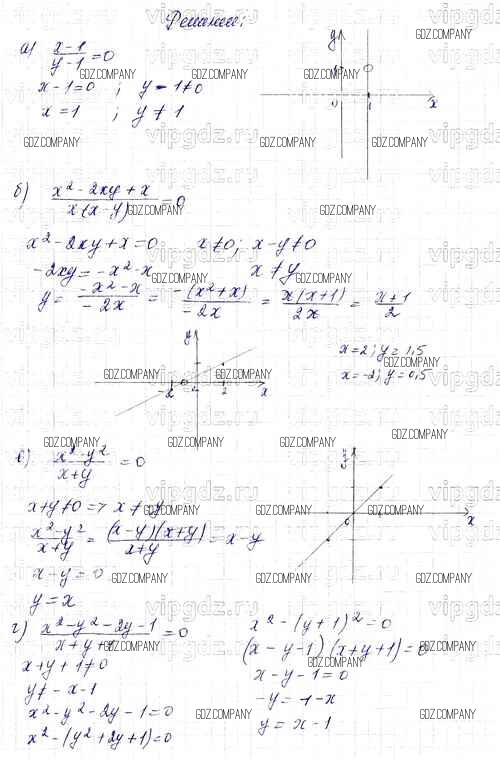 Решение:
а) x-1/y-1 = 0
x-1=0 ; y-1≠0
x=1 ; y≠1
y
1
0
1
x
б) x²-2xy+x/x(x-y) = 0
x²-2xy+x=0 x≠0; x-y≠0
-2xy=-x²-x x≠y
y= -x²-x/-2x = -(x²+x)/-2x = x(x+1)/2x = x+1/2
y
x=2; y=1,5
x=-2; y=0,5
-2
0
2
x
в) x²-y²/x+y = 0
x+y≠0 => x≠-y
x²-y²/x+y = (x-y)(x+y)/x+y = x-y
x-y=0
y=x
y
0
x
г) x²-y²-2y-1/x+y+1 = 0
x+y+1≠0
y≠-x-1
x²-y²-2y-1=0
x²-(y²+2y+1)=0
x²-(y+1)²=0
(x-y-1)(x+y+1)=0
x-y-1=0
-y=1-x
y=x-1
GDZ.COMPANY
vipgdz.ru